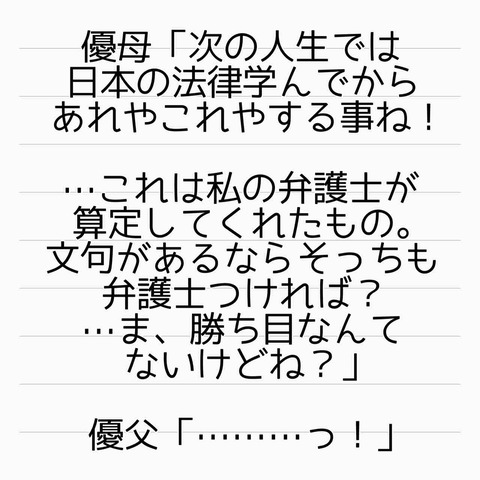 優母「次の人生では
日本の法律学んでから
あれやこれやする事ね！
…これは私の弁護士が
算定してくれたもの。
文句があるならそっちも
弁護士つければ？
…ま、勝ち目なんて
ないけどね？」
優父「………っ！」